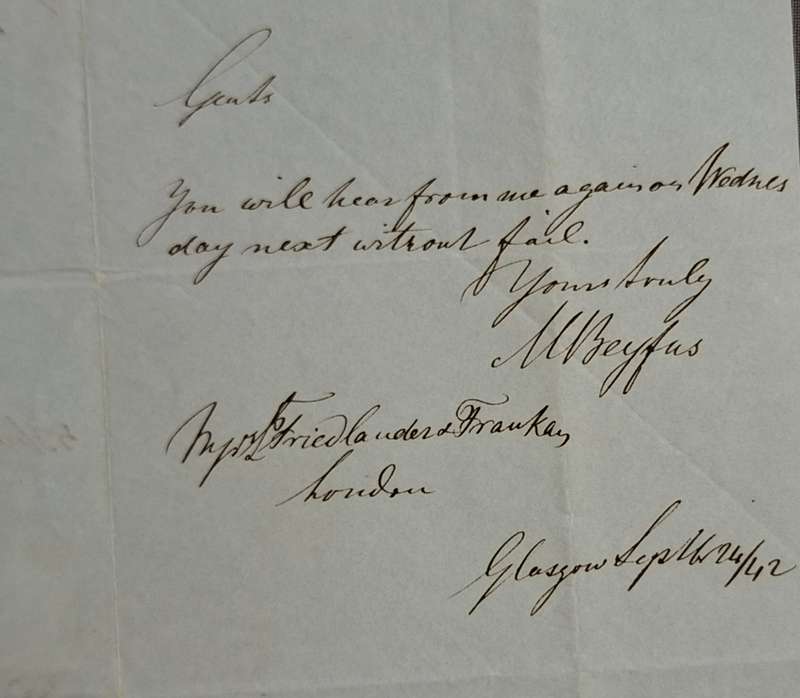 Gents
You will hear from me again on Wednes
day next without fail.
Yours truly
M Beyfus
Friedlander & Frankau
London
Glasgow Septbr 24/42